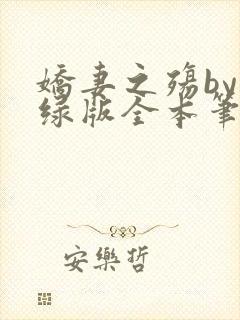 嬌妻之殤by
绿版全本筆
安樂哲